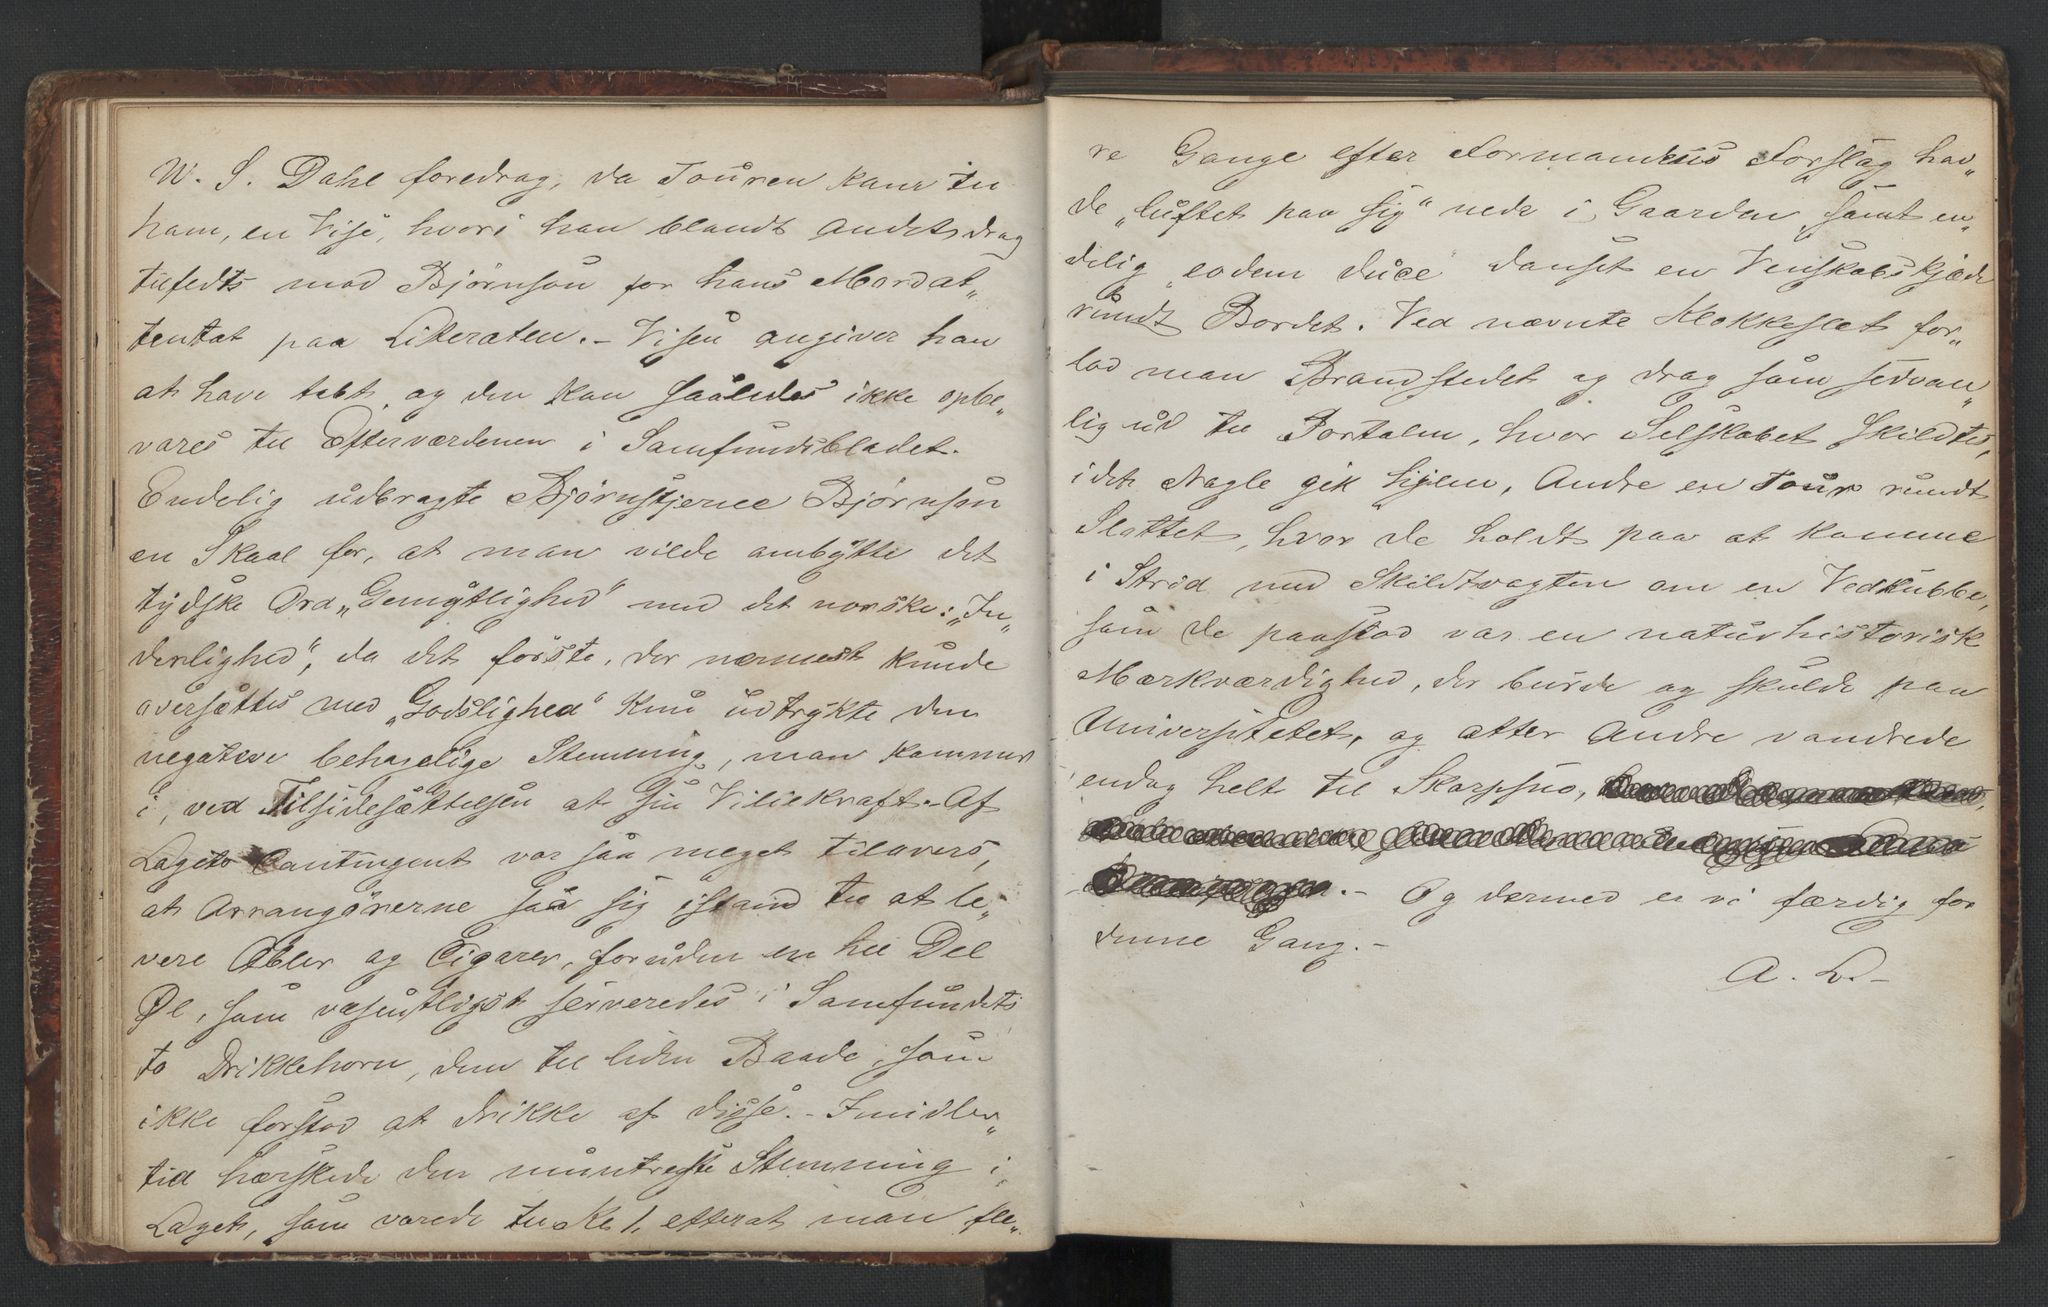 W. S. Dahl foredrog, da Touren kom til
ham, en Vise, hvori han blandt Andet drog
tilfelts mod Bjørnson for hans Mordat„
tentat paa Litteraten. – Visen angiver han
at have tabt, og den kan saaledes ikke opbe„
vares til Efterverdenen i Samfundsbladet.
Endelig udbragte Bjørnstjerne Bjørnson
en Skaal for, at man vilde ombytte det
tydske Ord „Gemytlighed“ med det norske: „In„
derlighed“, da det første, der nærmest kunde
oversættes med „Godslighed“ kun udtrykte den
negative behagelige Stemning, man kommer
i, ved Tilsidesættelsen af sin Viliekraft. – Af
Lagets Contingent var saa meget tilovers,
at Arrangørerne saa sig istand til at le„
vere Æbler og Cigarer, foruden en hel Del
Øl, som væsentligst serveredes i Samfundets
to Drikkehorn, dem til liden Baade, som
ikke forstod at drikke af disse. – Imidler„
tid herskede den muntreste Stemning i
Laget, som varede til Kl 1, efterat man fle„
re Gange efter Formandens Forslag hav„
de „luftet paa sig“ nede i Gaarden, samt en„
delig „eodem duce“ danset en Venskabskjæde
rundt Bordet. Ved nævnte Klokkeslet for„
lod man Brandstedet og drog som sedvan„
lig ud til Portalen, hvor Selskabet skildtes,
idet Nogle gik hjem, Andre en Tour rundt
Slottet, hvor de holdt paa at komme
i Strid med Skildtvagten om en Vedkubbe,
som de paastod var en naturhistorisk
Mærkværdighed, der burde og skulde paa
Universitetet, og atter Andre vandrede
endog helt til Skarpsno,
. – Og dermed er vi færdig for
denne Gang. –
A. L. –